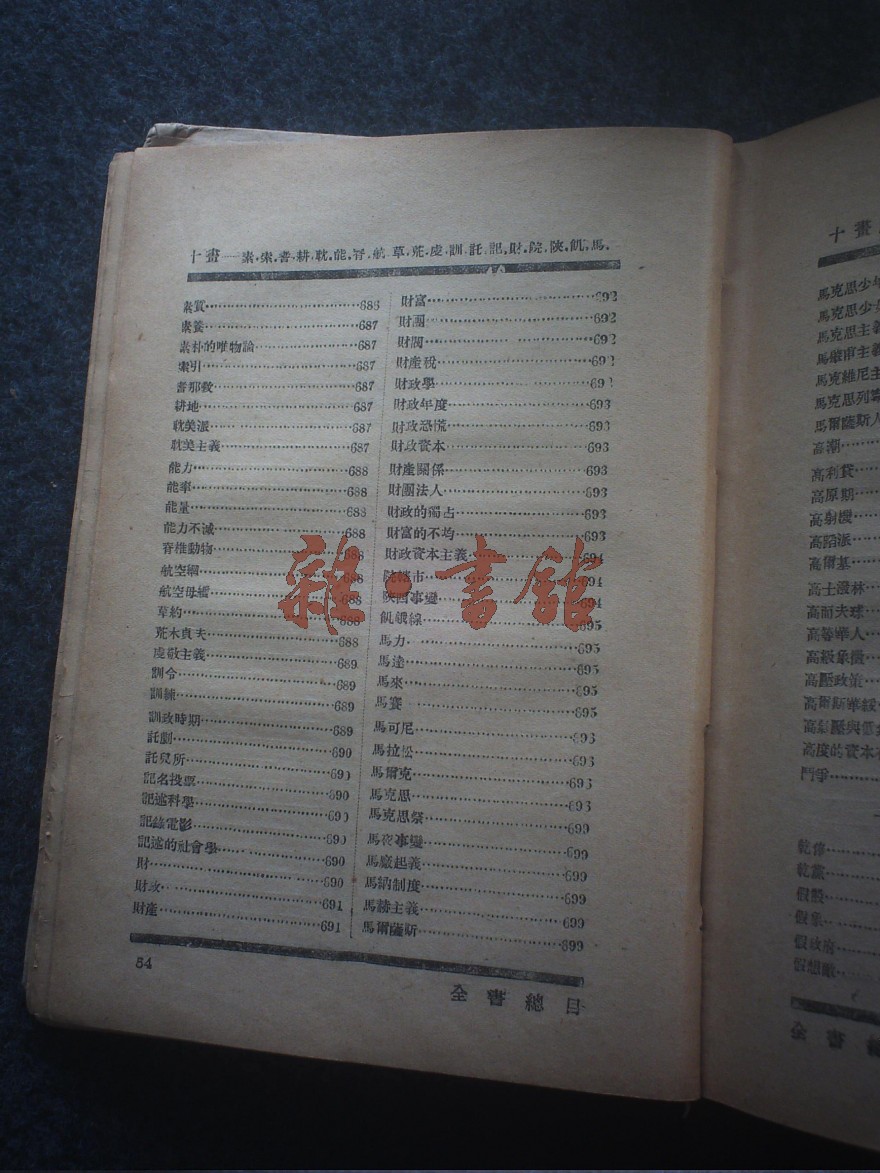 十畫——素,索,耆,耕,耽,能,脊,航,草,荒,虔,訓,託,記,財,院,陝,飢,馬,
素質……688
素養……687
素朴的唯物論……687
索引……687
耆那教……687
耕地……687
耽美派……687
耽美主義……687
能力……688
能率……688
能量……688
能力不滅……688
脊椎動物……688
航空網……688
航空母艦……688
草約……688
荒木貞夫……688
虔敬主義……689
訓令……689
訓練……689
訓政時期……689
託劇……690
託兒所……690
記名投票……690
記述科學……690
記錄電影……690
記述的社會學……690
財……690
財政……691
財產……691
財富……692
財團……692
財閥……692
財產稅……692
財政學……692
財政年度……693
財政恐慌……693
財政資本……693
財產關係……693
財團法人……693
財政的獨占……693
財富的不均……693
財政資本主義……694
院轄市……694
陝西事變……694
飢餓線……695
馬力……695
馬達……695
馬來……695
馬賽……695
馬可尼……695
馬拉松……696
馬爾克……696
馬克思……696
馬克思祭……699
馬夜事變……699
馬廠起義……699
馬納制度……699
馬赫主義……699
馬爾薩斯……699
54
全書總目
十畫
馬克思少年
馬克思少
馬克思主義
馬克維尼主
馬克思列寧
馬爾薩斯人
高潮……
高利貸……
高原期……
高射機……
高蹈派……
高爾基……
高士潑林
高而夫球
高等華人
高級象徵
高壓政策
高爾斯華綏
高度的資本
鬥爭……
乾俸……
乾薪……
假設……
假象……
假政府
假想敵……
全書總
雜·書館